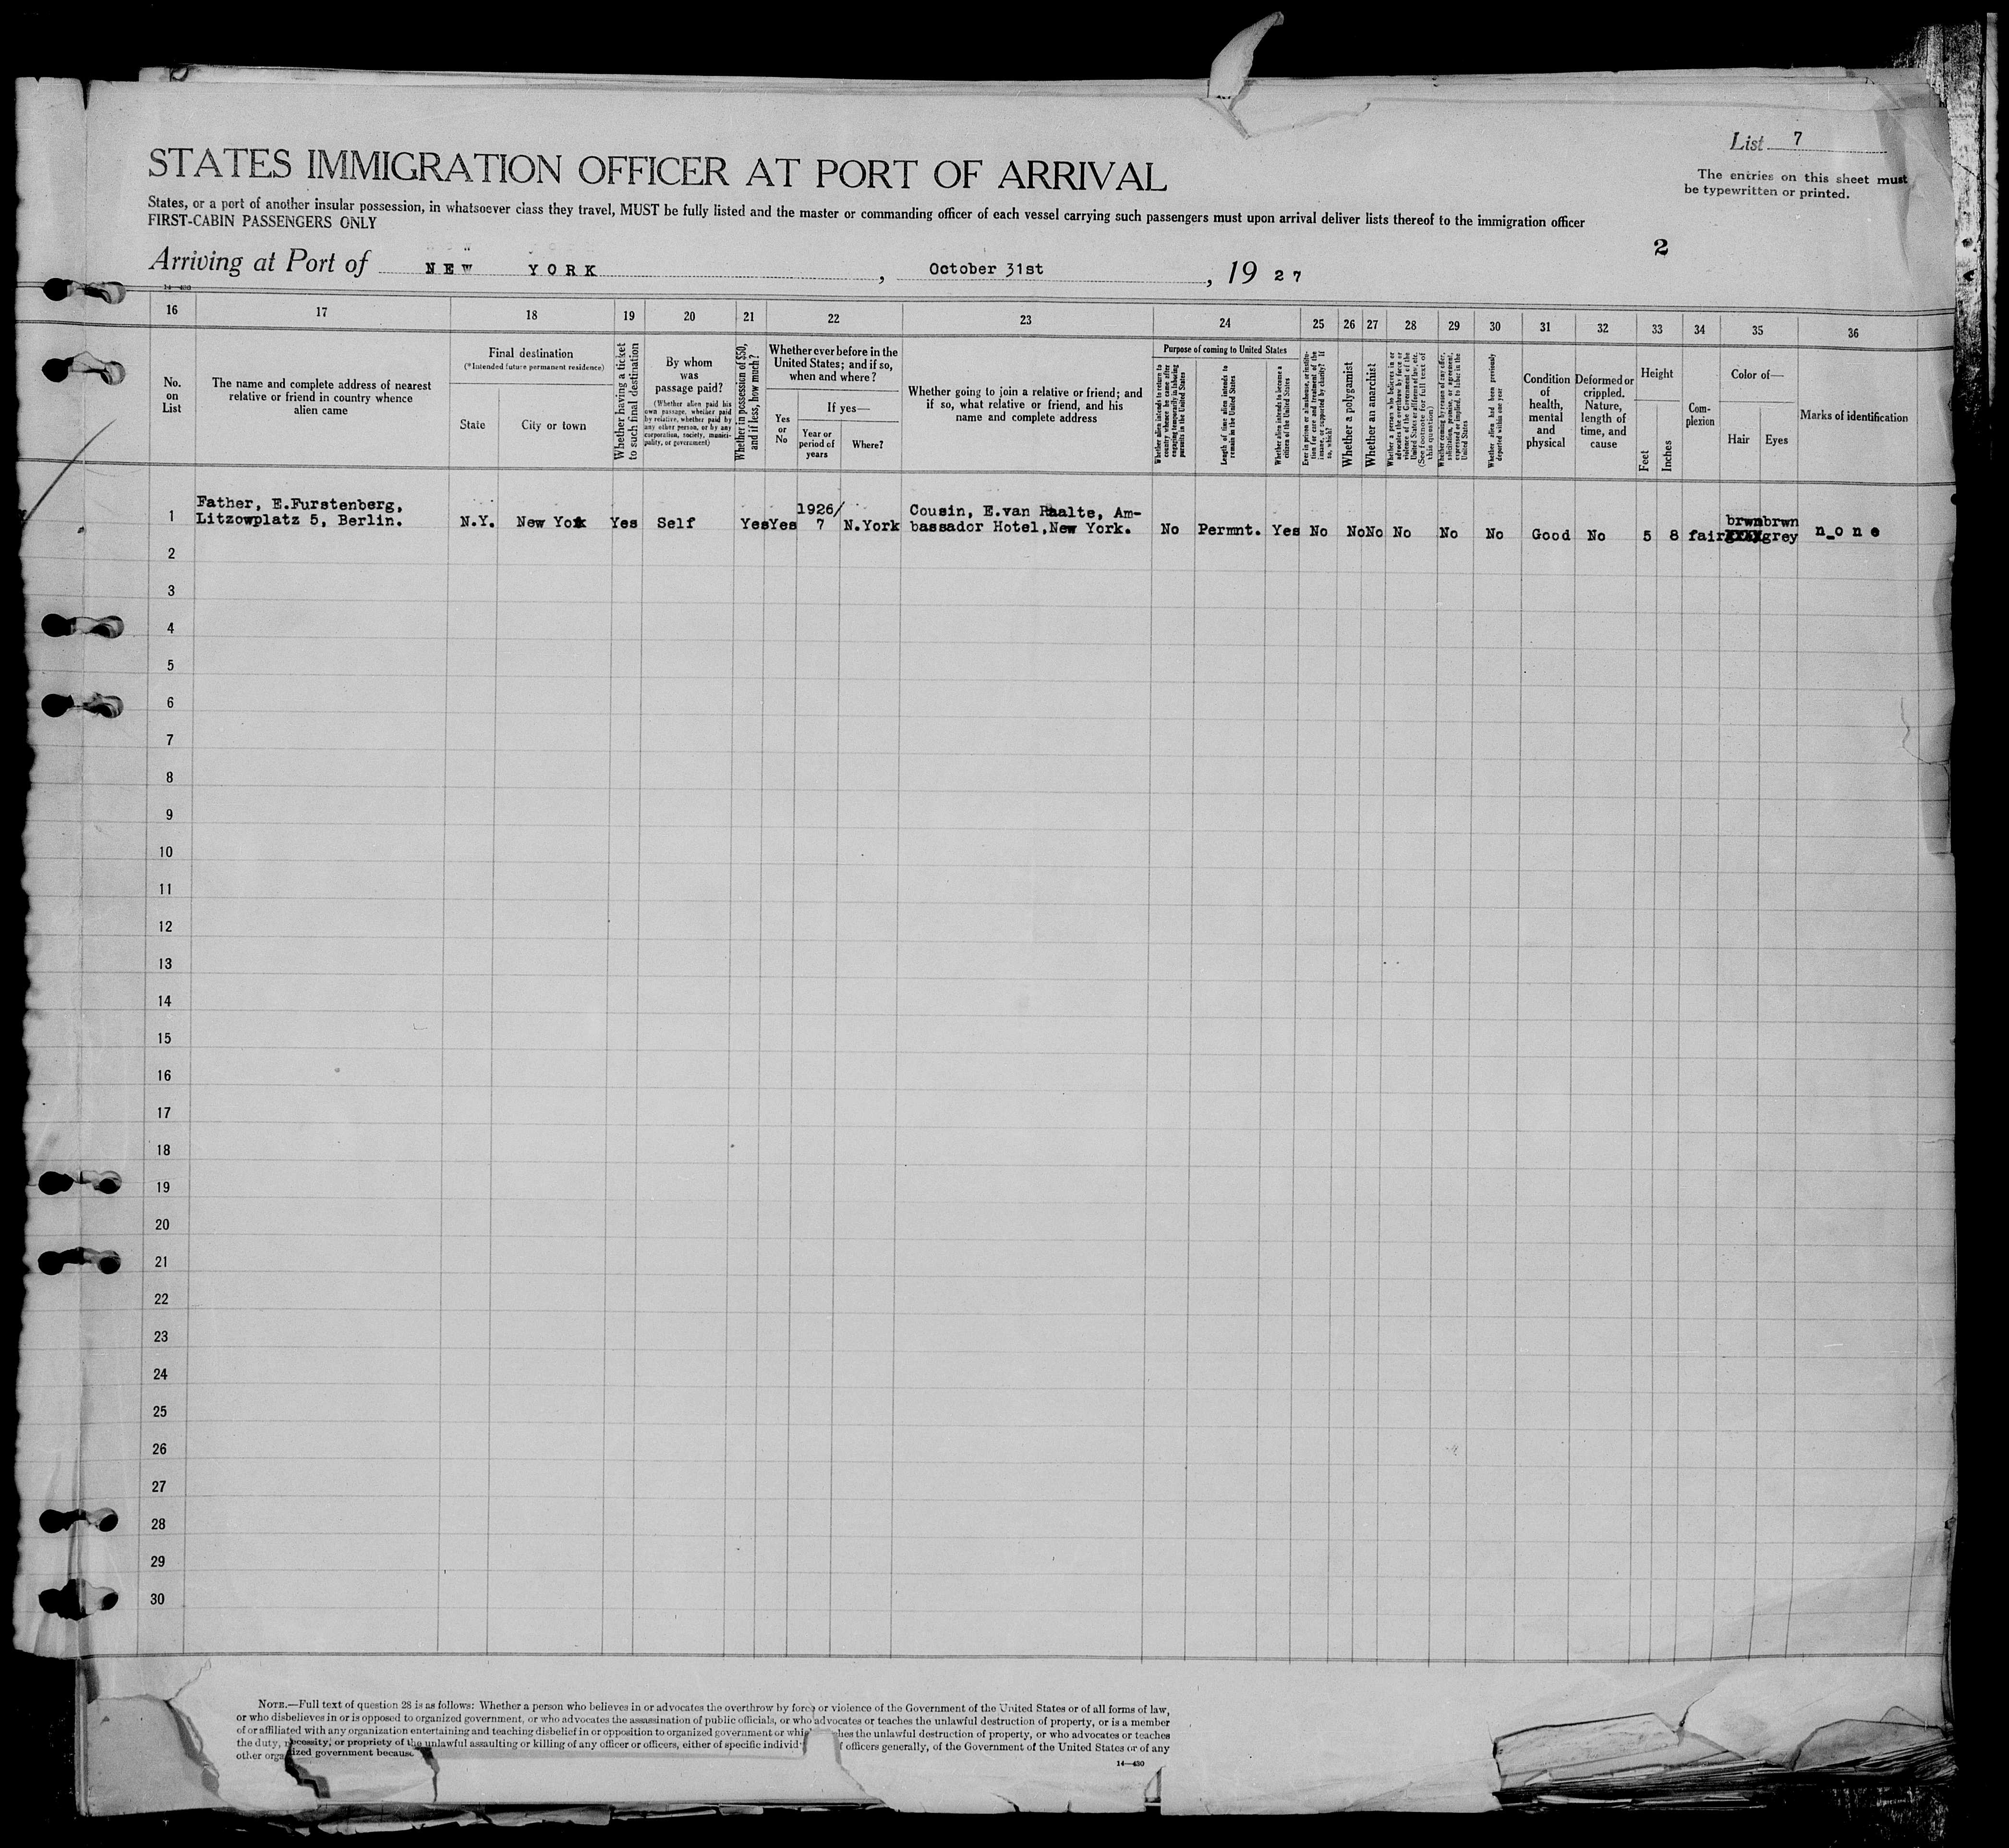 List 7
The entries on this sheet must
be typewritten or printed.
STATES IMMIGRATION OFFICER AT PORT OF ARRIVAL
States, or a port of another insular possession, in whatsoever class they travel, MUST be fully listed and the master or commanding officer of each vessel carrying such passengers must upon arrival deliver lists thereof to the immigration officer
FIRST-CABIN PASSENGERS ONLY
2
Arriving at Port of NEW YORK, October 31st, 19 27
14—430
16 17 18 19 20 21 22 23 24 25 26 27 28 29 30 31 32 33 34 35 36
No.
on
List
The name and complete address of nearest
relative or friend in country whence
alien came
Final destination
(*Intended future permanent residence)
State
City or town
Whether having a ticket
to such final destination
By whom
was
passage paid?
(Whether alien paid his
own passage, whether paid
by relative, whether paid by
any other person, or by any
corporation, society, munici-
pality, or government)
Whether in possession of $50,
and if less, how much?
Whether ever before in the
United States; and if so,
when and where?
Yes
or
No
If yes—
Year or
period of
years
Where?
Whether going to join a relative or friend; and
if so, what relative or friend, and his
name and complete address
Purpose of coming to United States
Whether alien intends to return to
country whence he came after
engaging temporarily in laboring
pursuits in the United States
Length of time alien intends to
remain in the United States
Whether alien intends to become a
citizen of the United States
Ever in prison or almshouse, or institu-
tion for care and treatment of the
insane, or supported by charity? If
so, which?
Whether a polygamist
Whether an anarchist
Whether a person who believes in or
advocates the overthrow by force or
violence of the Government of the
United States or all forms of law, etc.
(See footnote for full text of
this question)
Whether coming by reason of any offer,
solicitation, promise, or agreement,
expressed or implied, to labor in the
United States
Whether alien had been previously
deported within one year
Condition
of
health,
mental
and
physical
Deformed or
crippled.
Nature,
length of
time, and
cause
Height
Feet
Inches
Com-
plexion
Color of—
Hair
Eyes
Marks of identification
1 Father, E.Furstenberg,
Litzowplatz 5, Berlin.
N.Y. New Yok Yes Self Yes Yes
1926/
7 N.York
Cousin, E.van Raalte, Am-
bassador Hotel,New York.
No Permnt. Yes No No No No No No Good No 5 8 fair
brwn brwn
grey
n_o n e
2
3
4
5
6
7
8
9
10
11
12
13
14
15
16
17
18
19
20
21
22
23
24
25
26
27
28
29
30
NOTE.—Full text of question 28 is as follows: Whether a person who believes in or advocates the overthrow by force or violence of the Government of the United States or of all forms of law,
or who disbelieves in or is opposed to organized government, or who advocates the assassination of public officials, or who advocates or teaches the unlawful destruction of property, or is a member
of or affiliated with any organization entertaining and teaching disbelief in or opposition to organized government or which hes the unlawful destruction of property, or who advocates or teaches
the duty, necessity, or propriety of the unlawful assaulting or killing of any officer or officers, either of specific individ f officers generally, of the Government of the United States or of any
other orga ized government because
14—430